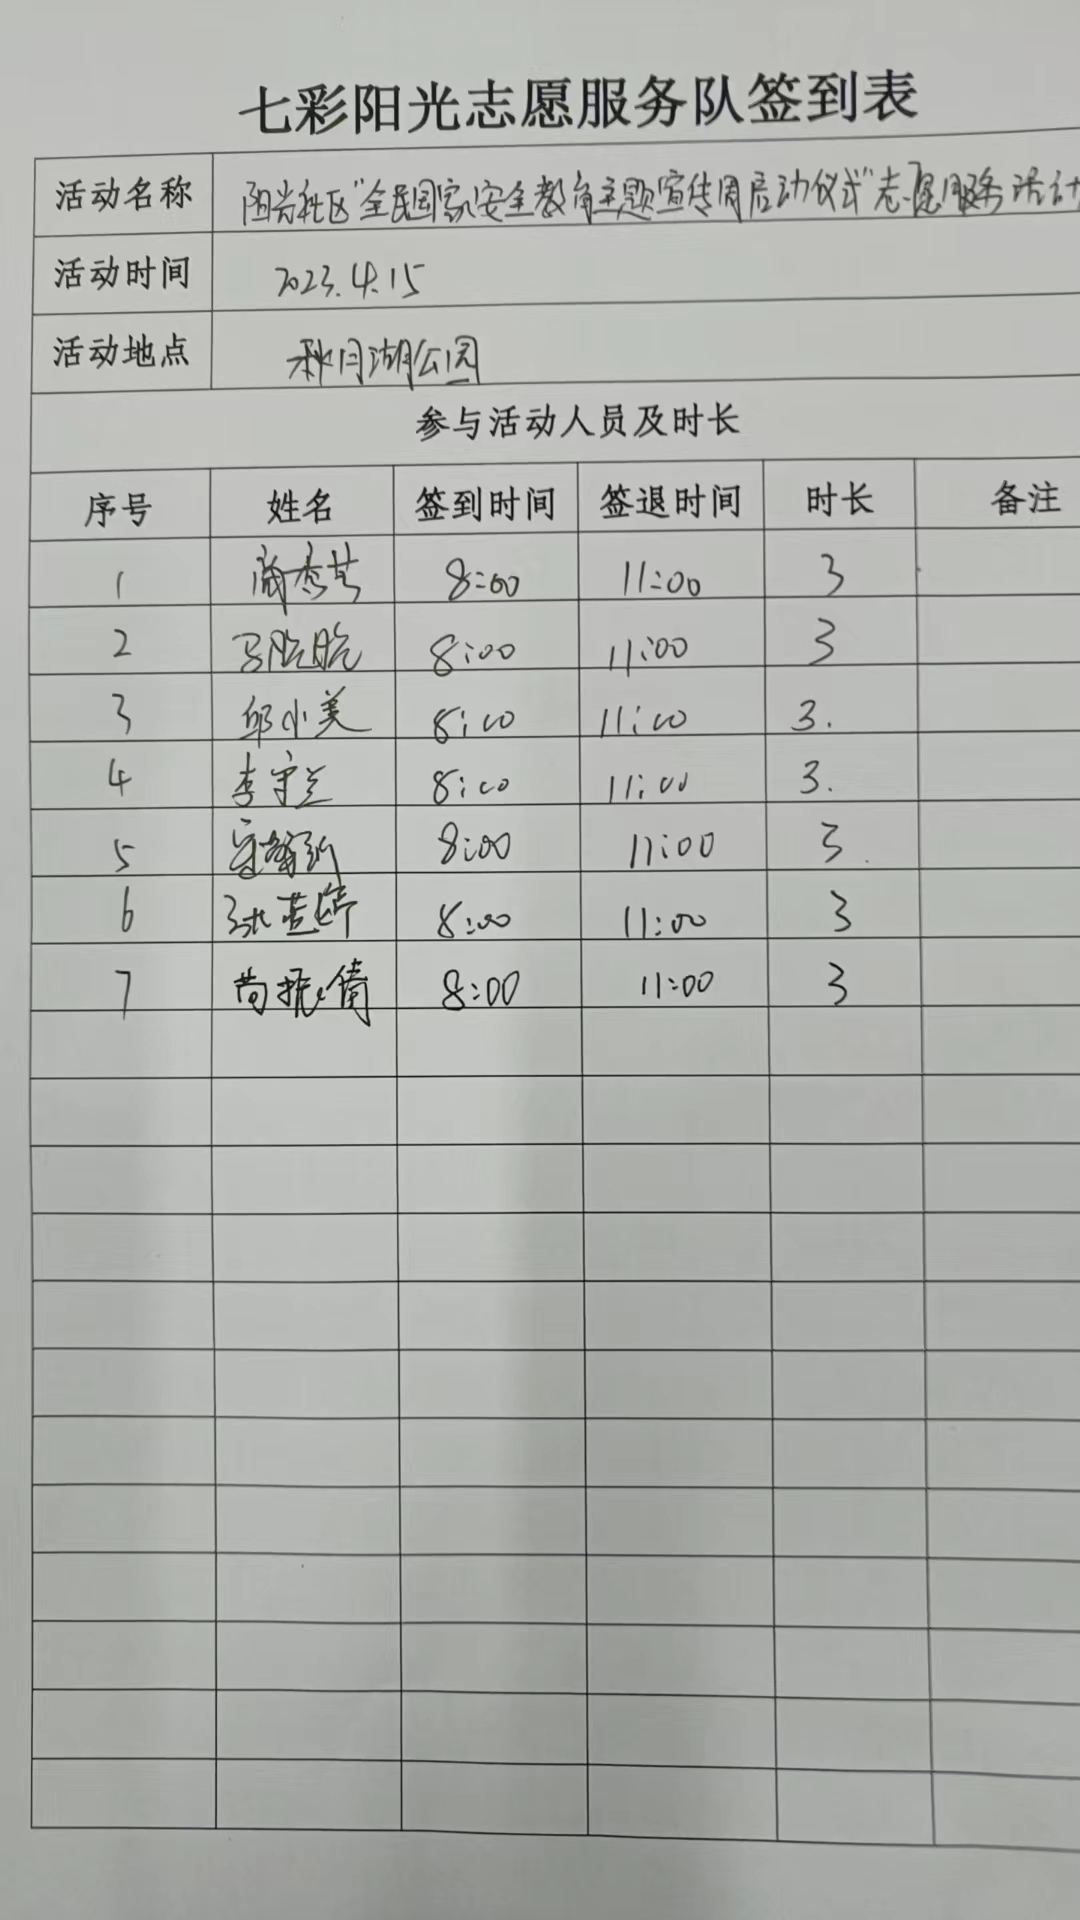 七彩阳光志愿服务队签到表
活动名称 阳光社区"全民国家安全教育主题宣传周启动仪式"志愿服务活动
活动时间 2023.4.15
活动地点 秋月湖公园
参与活动人员及时长
序号 姓名 签到时间 签退时间 时长 备注
1 8:00 11:00 3
2 马皖皖 8:00 11:00 3
3 邱小美 8:00 11:00 3.
4 李守兰 8:00 11:00 3.
5 8:00 11:00 3.
6 8:00 11:00 3
7 苟振倩 8:00 11:00 3